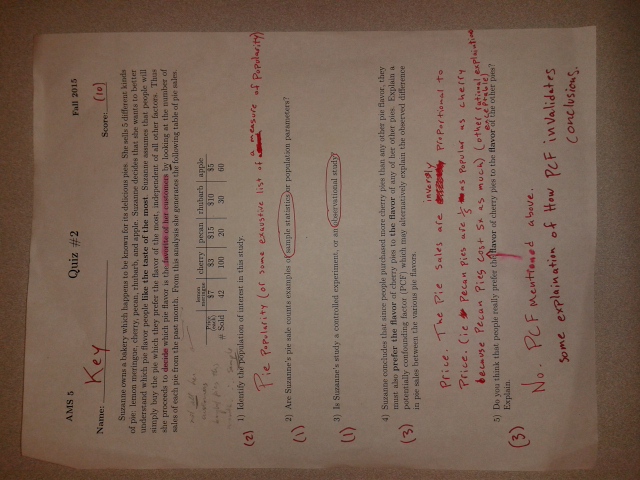 AMS 5 Quiz #2 Fall 2015
Name: Key Score: (10)
Suzanne owns a bakery which happens to be known for its delicious pies. She sells 5 different kinds
of pie: lemon meringue, cherry, pecan, rhubarb, and apple. Suzanne decides that she wants to better
understand which pie flavor people like the taste of the most. Suzanne assumes that people will
simply buy the pie which they prefer the flavor of the most, independent of all other factors. Thus
she proceeds to decide which pie flavor is the favorite of her customers by looking at the number of
sales of each pie from the past month. From this analysis she generates the following table of pie sales.
not all her
customers
bought pies this
sample
lemon meringue cherry pecan rhubarb apple
Price (each) $7 $3 $15 $10 $5
# Sold 42 100 20 30 60
(2) 1) Identify the population of interest in this study.
Pie Popularity (or some exaustive list of a measure of Popularity)
(1) 2) Are Suzanne's pie sale counts examples of sample statistics or population parameters?
(1) 3) Is Suzanne's study a controlled experiment, or an observational study?
4) Suzanne concludes that since people purchased more cherry pies than any other pie flavor, they
must also prefer the flavor of cherry pies to the flavor of any of her other pies. Explain a
(3) potentially confounding factor (PCF) which may alternatively explain the observed difference
in pie sales between the various pie flavors.
Price. The Pie sales are inversly Proportional to
Price. (ie Pecan pies are 1/5 as popular as cherry
because Pecan Pies cost 5x as much) (other rational explaination
exceptable)
5) Do you think that people really prefer the flavor of cherry pies to the flavor of the other pies?
(3) Explain.
No. PCF mentioned above.
some explaination of How PCF invalidates
conclusions.